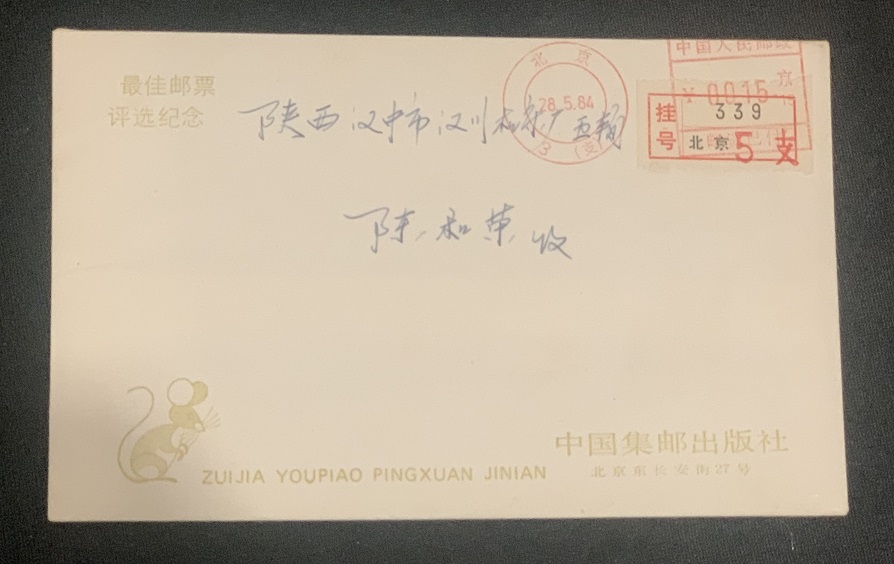 最佳邮票
评选纪念
北京
28.5.84
3 (支)
中国人民邮政
京
¥ 0015
挂号
339
北京 5 支
陕西汉中市汉川机床厂
陈和荣 收
ZUIJIA YOUPIAO PINGXUAN JINIAN
中国集邮出版社
北京东长安街27号